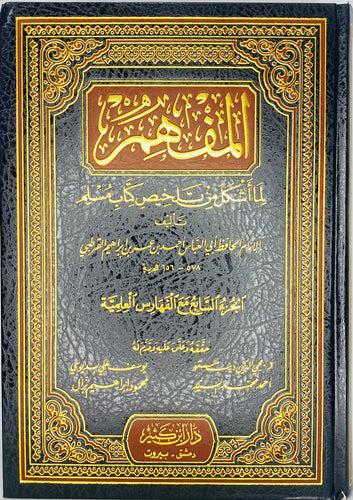 المفهم
لما أشكل من تلخيص كتاب مسلم
تأليف
الإمام الحافظ أبي العباس أحمد بن عمر بن إبراهيم القرطبي
٥٧٨ - ٦٥٦ هجرية
الجزء السابع مع الفهارس العلمية
حققه وعلق عليه وقدم له
محيي الدين ديب مستو يوسف علي بديوي
أحمد محمد السيد محمود إبراهيم بزال
دار ابن كثير
دمشق - بيروت